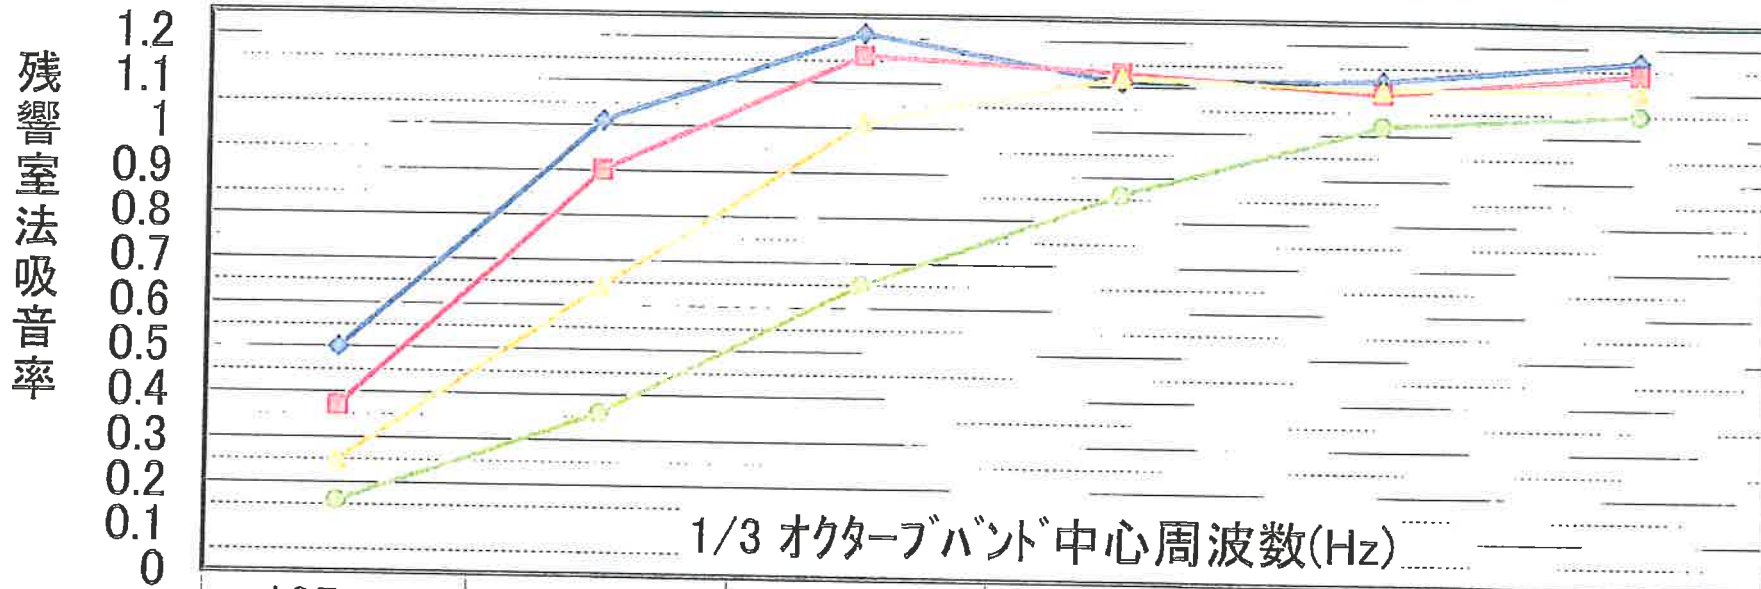 残響室法吸音率
1.2
1.1
1
0.9
0.8
0.7
0.6
0.5
0.4
0.3
0.2
0.1
0
1/3 オクターブバンド中心周波数(Hz)